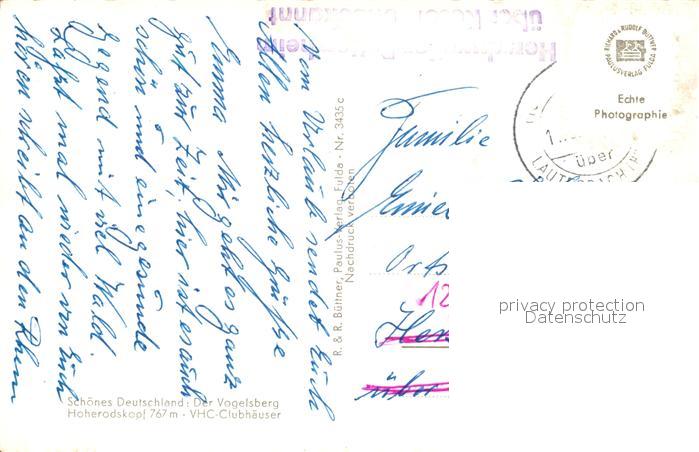 Vom Urlaub sendet Euch
Allen herzliche Grüße
Emma Mir geht es ganz
gut zur Zeit, hier ist es auch
schön und eine gesunde
Gegend mit viel Wald.
Laßt mal wieder von Euch
hören schreibt an den Rhein
Schönes Deutschland: Der Vogelsberg
Hoherodskopf 767 m - VHC-Clubhäuser
R. & R. Büttner, Paulus-Verlag, Fulda - Nr. 3435 c
Nachdruck verboten
über Kassel
RICHARD & RUDOLF BÜTTNER
PAULUSVERLAG FULDA
Echte
Photographie
über
LAUTERBACH (H
Familie
Orts
12
über
privacy protection
Datenschutz